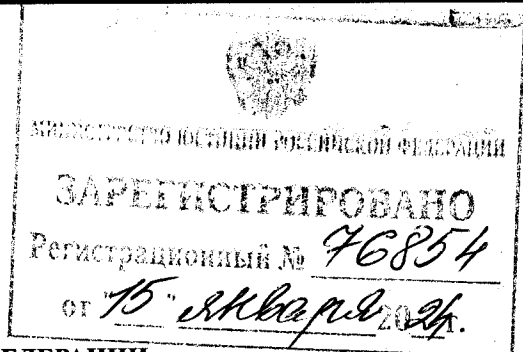 МИНИСТЕРСТВО ЮСТИЦИИ РОССИЙСКОЙ ФЕДЕРАЦИИ
ЗАРЕГИСТРИРОВАНО
Регистрационный № 76854
от "15" января 2024г.